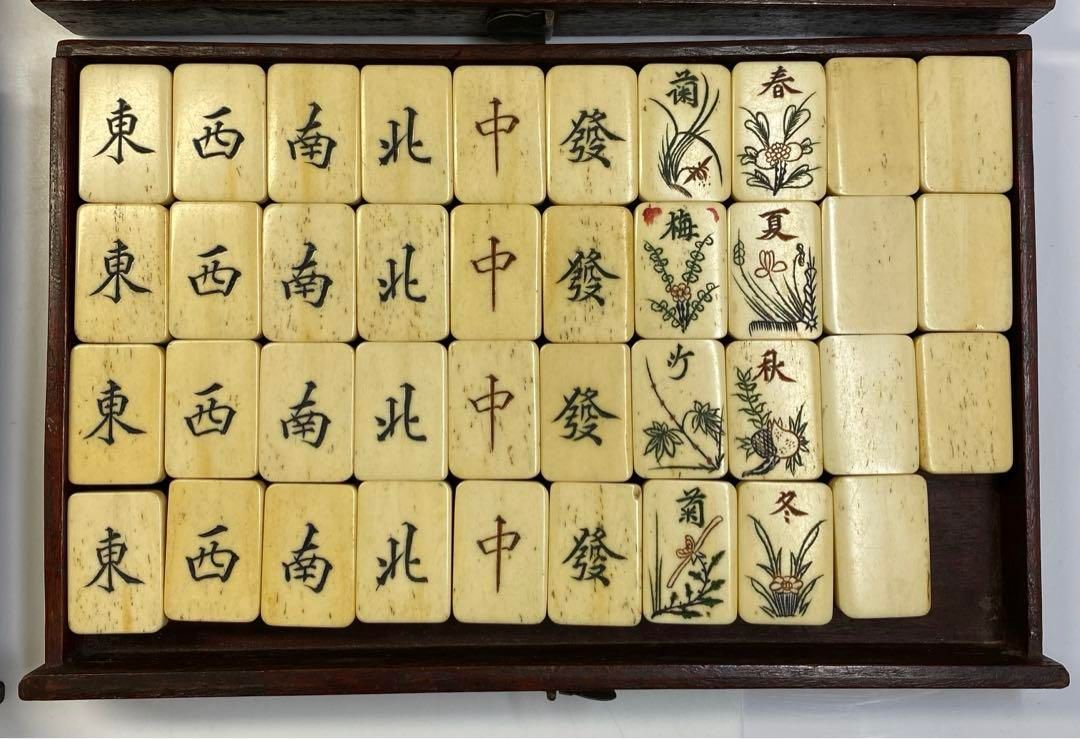 東 西 南 北 中 發 蘭 春
東 西 南 北 中 發 梅 夏
東 西 南 北 中 發 竹 秋
東 西 南 北 中 發 菊 冬